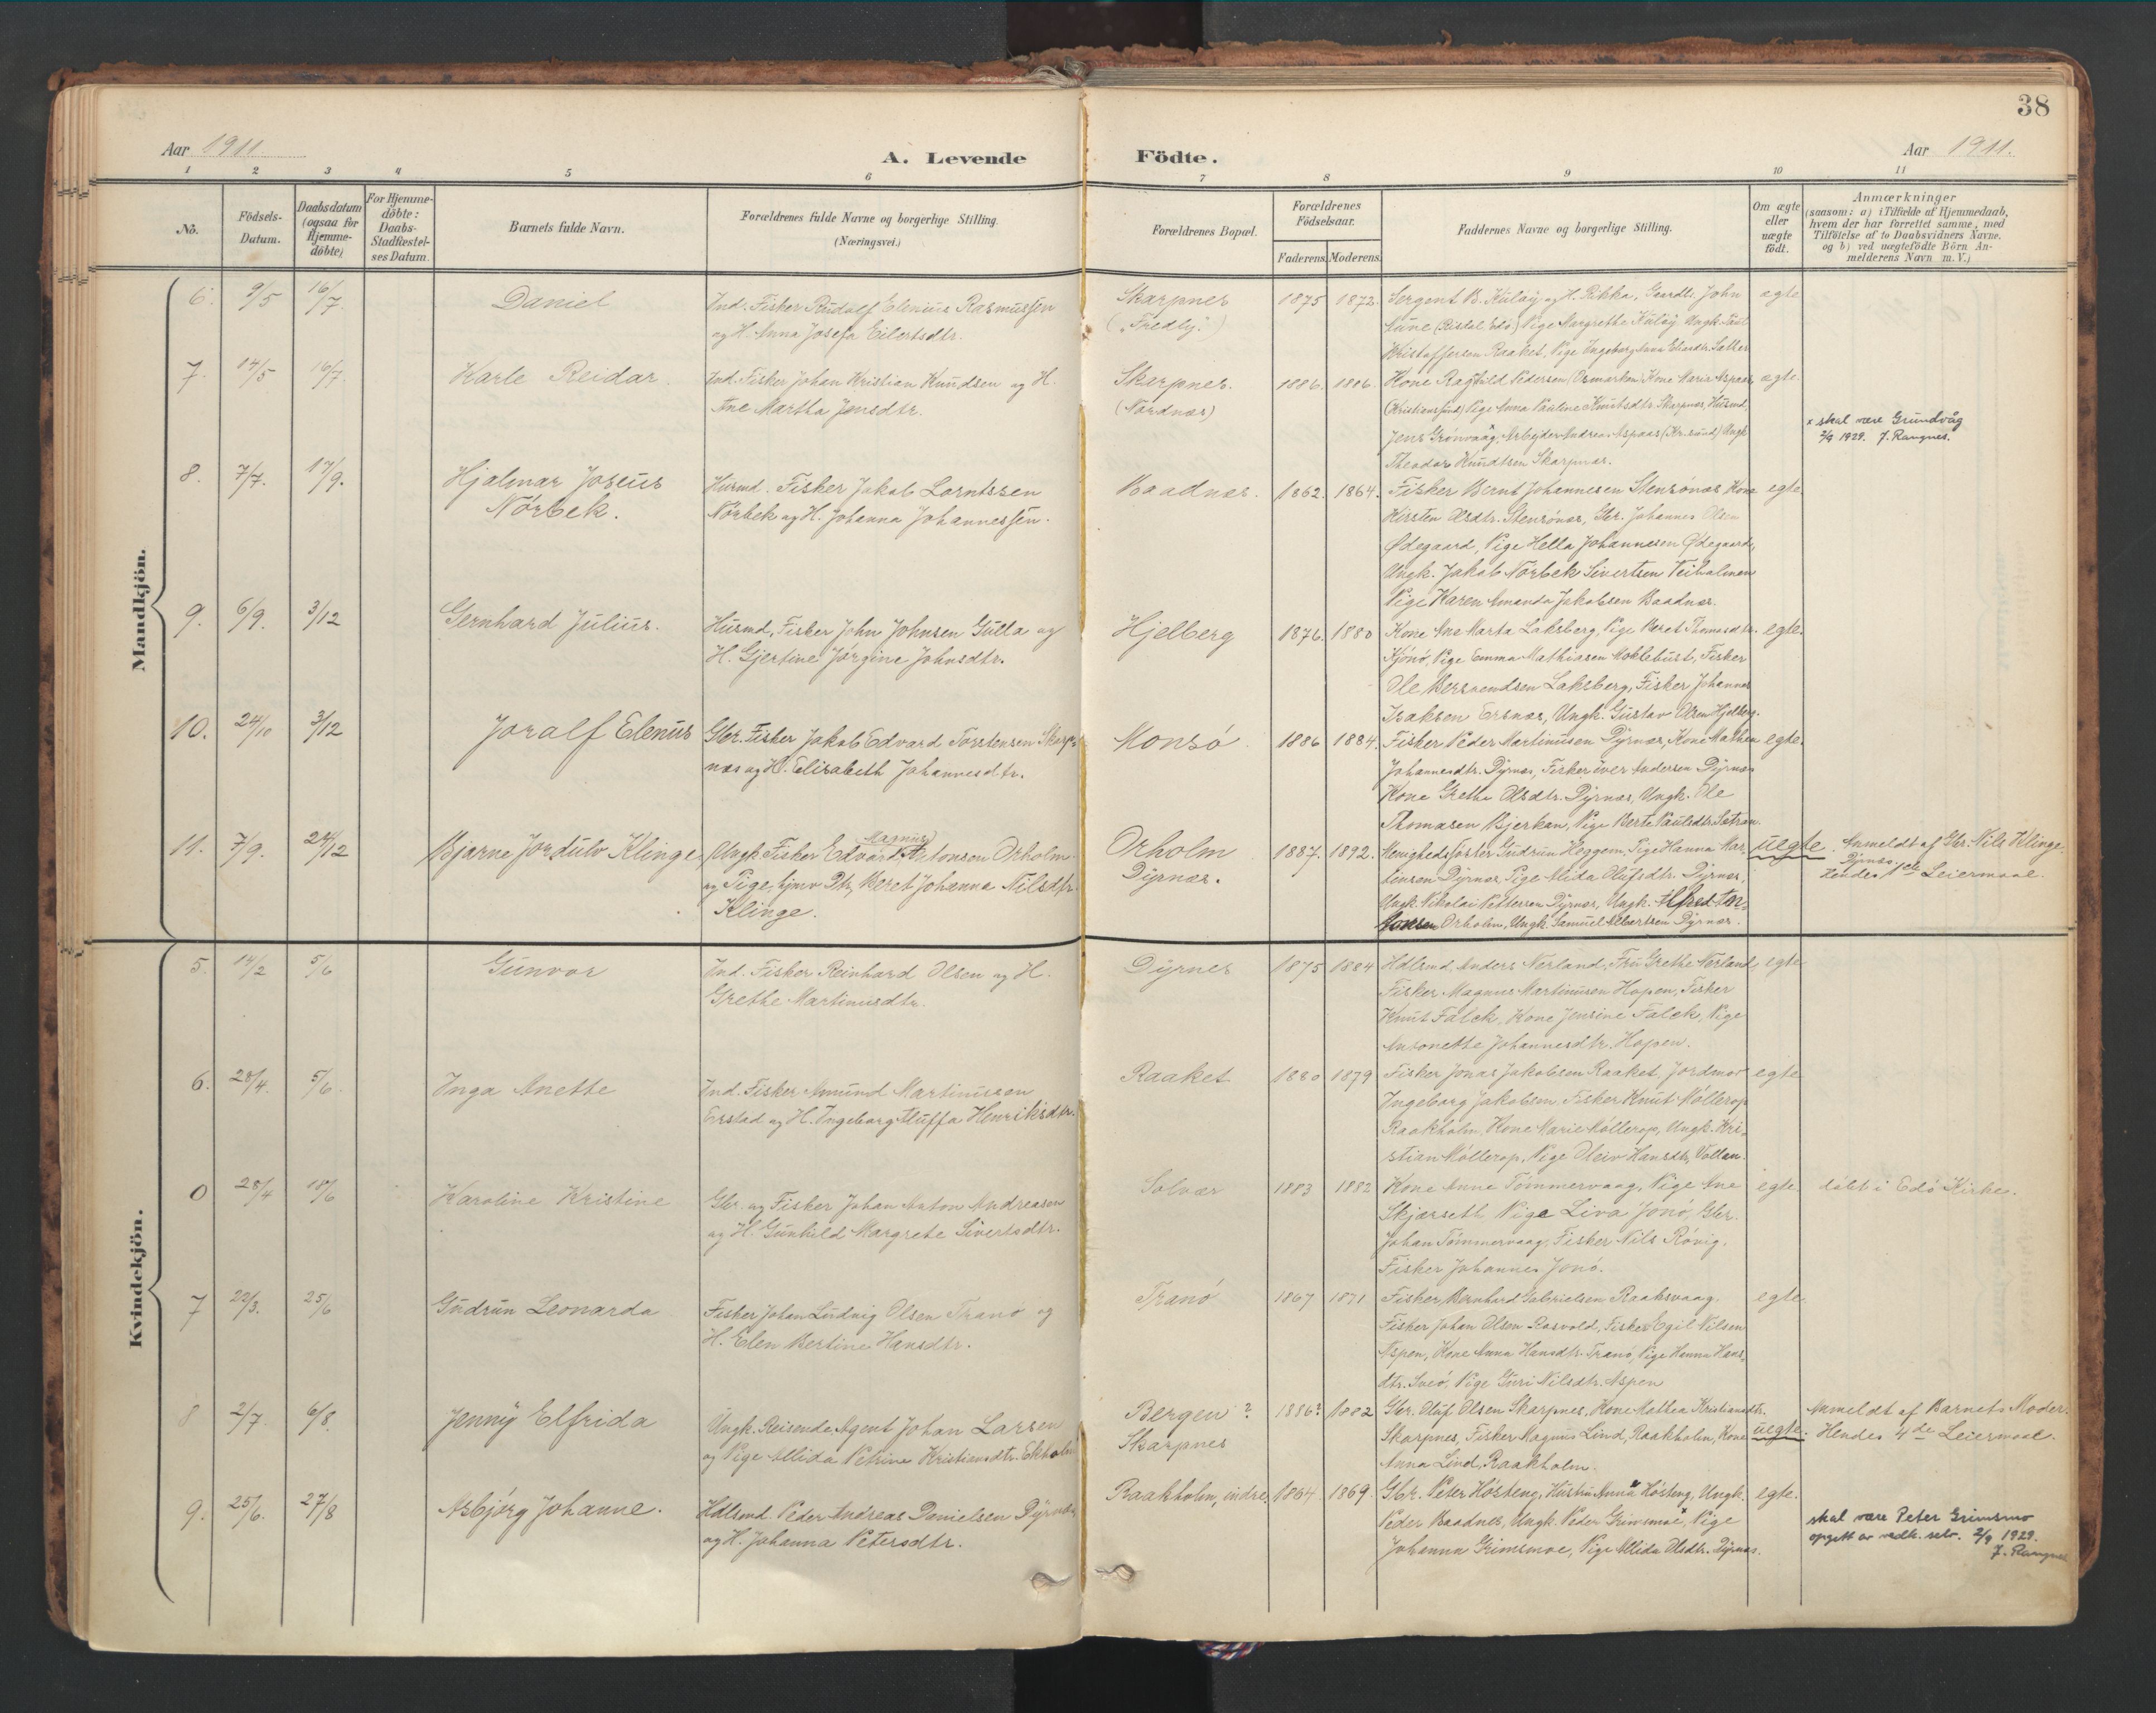 38
Aar 1911
A. Levende Födte.
Aar 1911.
1 2 3 4 5 6 7 8 9 10 11
No.
Födsels-Datum.
Daabsdatum (ogsaa for Hjemme-döbte)
For Hjemme-döbte: Daabs-Stadfæstel-ses Datum.
Barnets fulde Navn.
Forældrenes fulde Navne og borgerlige Stilling.
(Næringsvei.)
Forældrenes Bopæl.
Forældrenes Födselsaar.
Faderens. Moderens.
Faddernes Navne og borgerlig Stilling.
Om ægte eller uægte födt.
Anmærkninger
(saasom: a) i Tilfælde af Hjemmedaab,
hvem der har forrettet samme, med
Tilföielse af to Daabsvidners Navne.
og b) ved uægtefödte Börn An-
melderens Navn m. V.)
Mandkjön.
6. 9/5 16/7. Daniel
Ind. Fisker Rudolf Elenius Rasmussen
og H. Anna Josefa Eilertsdtr.
Skarpnes
("Fredly.")
1875 1872.
Sergent B. Kuløy og H. Rikka, Gaardbr. John
Pige Margrethe Kuløy Ungk. Paul
Kristoffersen Raaket, Pige Ingeborg Anna
ægte
7. 14/5 16/7. Karle Reidar.
Ind. Fisker Johan Kristian Knudsen og H.
Ane Martha Jensdtr.
Skarpnes.
(Nordnæs)
1886. 1886.
Kone Ragnhild Pedersen (Osmarken) Kone Marie Aspaas,
(Kristianssund) Pige Anna Pauline Knutsdtr. Skarpnes, Husmd.
Jens Grönvaag, Arbejder Andreas Aspaas (Kr.sund) Ungk
Theodor Knudtsen Skarpnæs.
ægte.
x skal være Grundvåg
2/9 1929. J. Rangnes.
8. 7/7. 17/9. Hjalmar Joseus
Nörbek.
Husmd. Fisker Jakob Lorntssen
Nörbek og H. Johanna Johannessen.
Baadnes.
1862. 1864.
Fisker Bernt Johannesen Stensönæs Kone
Kirsten Olsdtr. Stensönæs, Gbr. Johannes Olsen
Ødegaard, Pige Hella Johannesen Ødegaard,
Ungk. Jakob Nörbek Sivertsen Veiholmen
Pige Karen Amanda Jakobsen Baadnes.
egte.
9. 6/9. 3/12 Gernhard Julius.
Husmd, Fisker John Johnsen Gulla og
H. Gjertine Jörgine Johnsdtr.
Hjelberg
1876. 1880
Kone Ane Marta Laksberg, Pige Beret Thomasdtr.
Kjönö, Pige Emma Mathiasen Moklebust, Fisker
Ole Bersvendsen Laksberg, Fisker Johannes
Isaksen Ersnæs, Ungk. Gustav Olsen Hjelberg.
egte.
10. 24/10 3/12 Joralf Elenus
Gbr. Fisker Jakob Edvard Torstensen Skarp-
næs og H. Elisabeth Johannesdtr.
Monsö
1886 1884.
Fisker Peder Martinusen Dyrnæs, Kone Mathea
Johannesdtr. Dyrnæs, Fisker Iver Andersen Dyrnæs
Kone Grethe Olsdtr. Dyrnæs, Ungk. Ole
Thomasen Bjerkan, Pige Berte Paulsdtr. Sætran.
egte.
11. 7/9. 24/12 Bjarne Jordulv Klinge,
Ungk. Fisker Edvard Magnus Antonsen Orholm
og Pige, hjmv Dtr, Beret Johanna Nilsdtr.
Klinge.
Orholm
Dyrnæs.
1887. 1892.
Menighedsjöster Gudrun Heggem, Pige Hanna Mar-
tinsen Dyrnæs, Pige Alida Olufsdtr. Dyrnæs,
Ungk. Nikolai Pettersen Dyrnæs, Ungk. Alfred An-
tonsen Orholm, Ungk. Samuel Albertsen Dyrnæs.
uegte.
Anmeldt af Gbr. Nils Klinge.
Dyrnæs.
Hendes 1ste Leiermaal.
Kvindekjön.
5. 14/2 5/6 Gunvor
Ind. Fisker Reinhard Olsen og H.
Grethe Martinusdtr.
Dyrnes
1875 1884
Hdlsmd. Anders Nerland, Fru Grethe Nerland,
Fisker Magnus Martinusen Hopen, Fisker
Knut Falck, Kone Jensine Falck, Pige
Antonette Johannesdtr. Hopen.
egte
6. 28/4. 5/6. Inga Anette
Ind. Fisker Amund Martinusen
Erstad og H. Ingeborg Huffa Henriksdtr.
Raaket
1880 1879
Fisker Jonas Jakobsen Raaket, Jordmor
Ingeborg Jakobsen, Fisker Knut Möllerop
Raakholm, Kone Marie Möllerop, Ungk. Kri-
stian Möllerop, Pige Oleiv Hansdtr, Vollan.
egte
0 28/4 18/6 Karoline Kristine
Gbr. og Fisker Johan Anton Andreasen
og H. Gunhild Margrete Sivertsdtr.
Solvær
1883 1882
Kone Anne Tömmervaag, Pige Ane
Skjærseth Pige Liva Jönö, Gbr.
Johan Tömmervaag, Fisker Nils Rövig,
Fisker Johannes Jönö.
egte.
döbt i Edö Kirke.
7 22/3. 25/6 Gudrun Leonarda
Fisker Johan Ludvig Olsen Tranö og
H. Elen Bertine Hansdtr.
Tranö
1867 1871
Fisker Bernhard Gabrielsen Raaksvaag.
Fisker Johan Olsen Rosvold, Fisker Egil Nilsen
Aspen, Kone Anna Hansdtr. Tranö, Pige Hanna Hans-
dtr. Sveö, Pige Guri Nilsdtr. Aspen
egte.
8 2/7. 6/8. Jenny Elfrida
Ungk. Reisende Agent Johan Larsen
og Pige Allida Petrine Kristiansdtr. Ekholm
Bergen?
Skarpnes
1886? 1882
Gbr. Oluf Olsen Skarpnes, Kone Mathea Kristiansdtr.
Skarpnes, Fisker Magnus Lind, Raakholm, Kone
Anna Lind, Raakholm.
uegte.
Anmeldt af Barnets Moder.
Hendes 4de Leiermaal.
9. 25/6. 27/8 Asbjørg Johanne.
Hdlsmd. Peder Andreas Danielsen Dyrnæs
og H. Johanna Petersdtr.
Raakholm, indre,
1864 1869.
Gbr. Peter Hösteng, Hustru Anna Hösteng, Ungk.
Peder Baadnes, Ungk. Peder Grimsmoe x, Pige
Johanna Grimsmoe, Pige Allida Olsdtr. Dyrnæs.
egte.
skal være Peter Grimsmo
opgitt av vedk. selv. 2/9 1929.
J. Rangnes